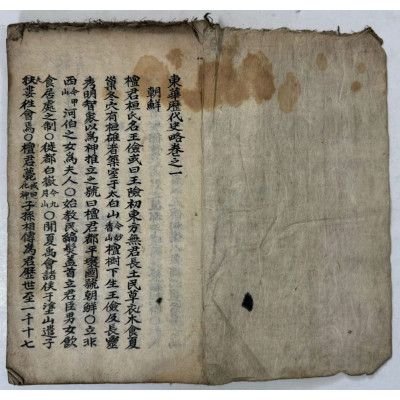 東華歷代史略卷之一
朝鮮
檀君桓氏名王儉或曰王險初東方無君長土民草衣木食夏
巢冬穴有桓雄者築室于太白山今妙香山檀樹下生王儉及長靈
秀明智衆以爲神推立之號曰檀君都平壤國號朝鮮〇立非
西岬河伯之女爲夫人〇始教民編髮盖首立君臣男女飮
食居處之制〇徙都白嶽今九月山〇聞夏禹會諸侯于塗山遣子
扶婁往會焉〇檀君薨或曰化神子孫相傳爲君歷世至一千十七